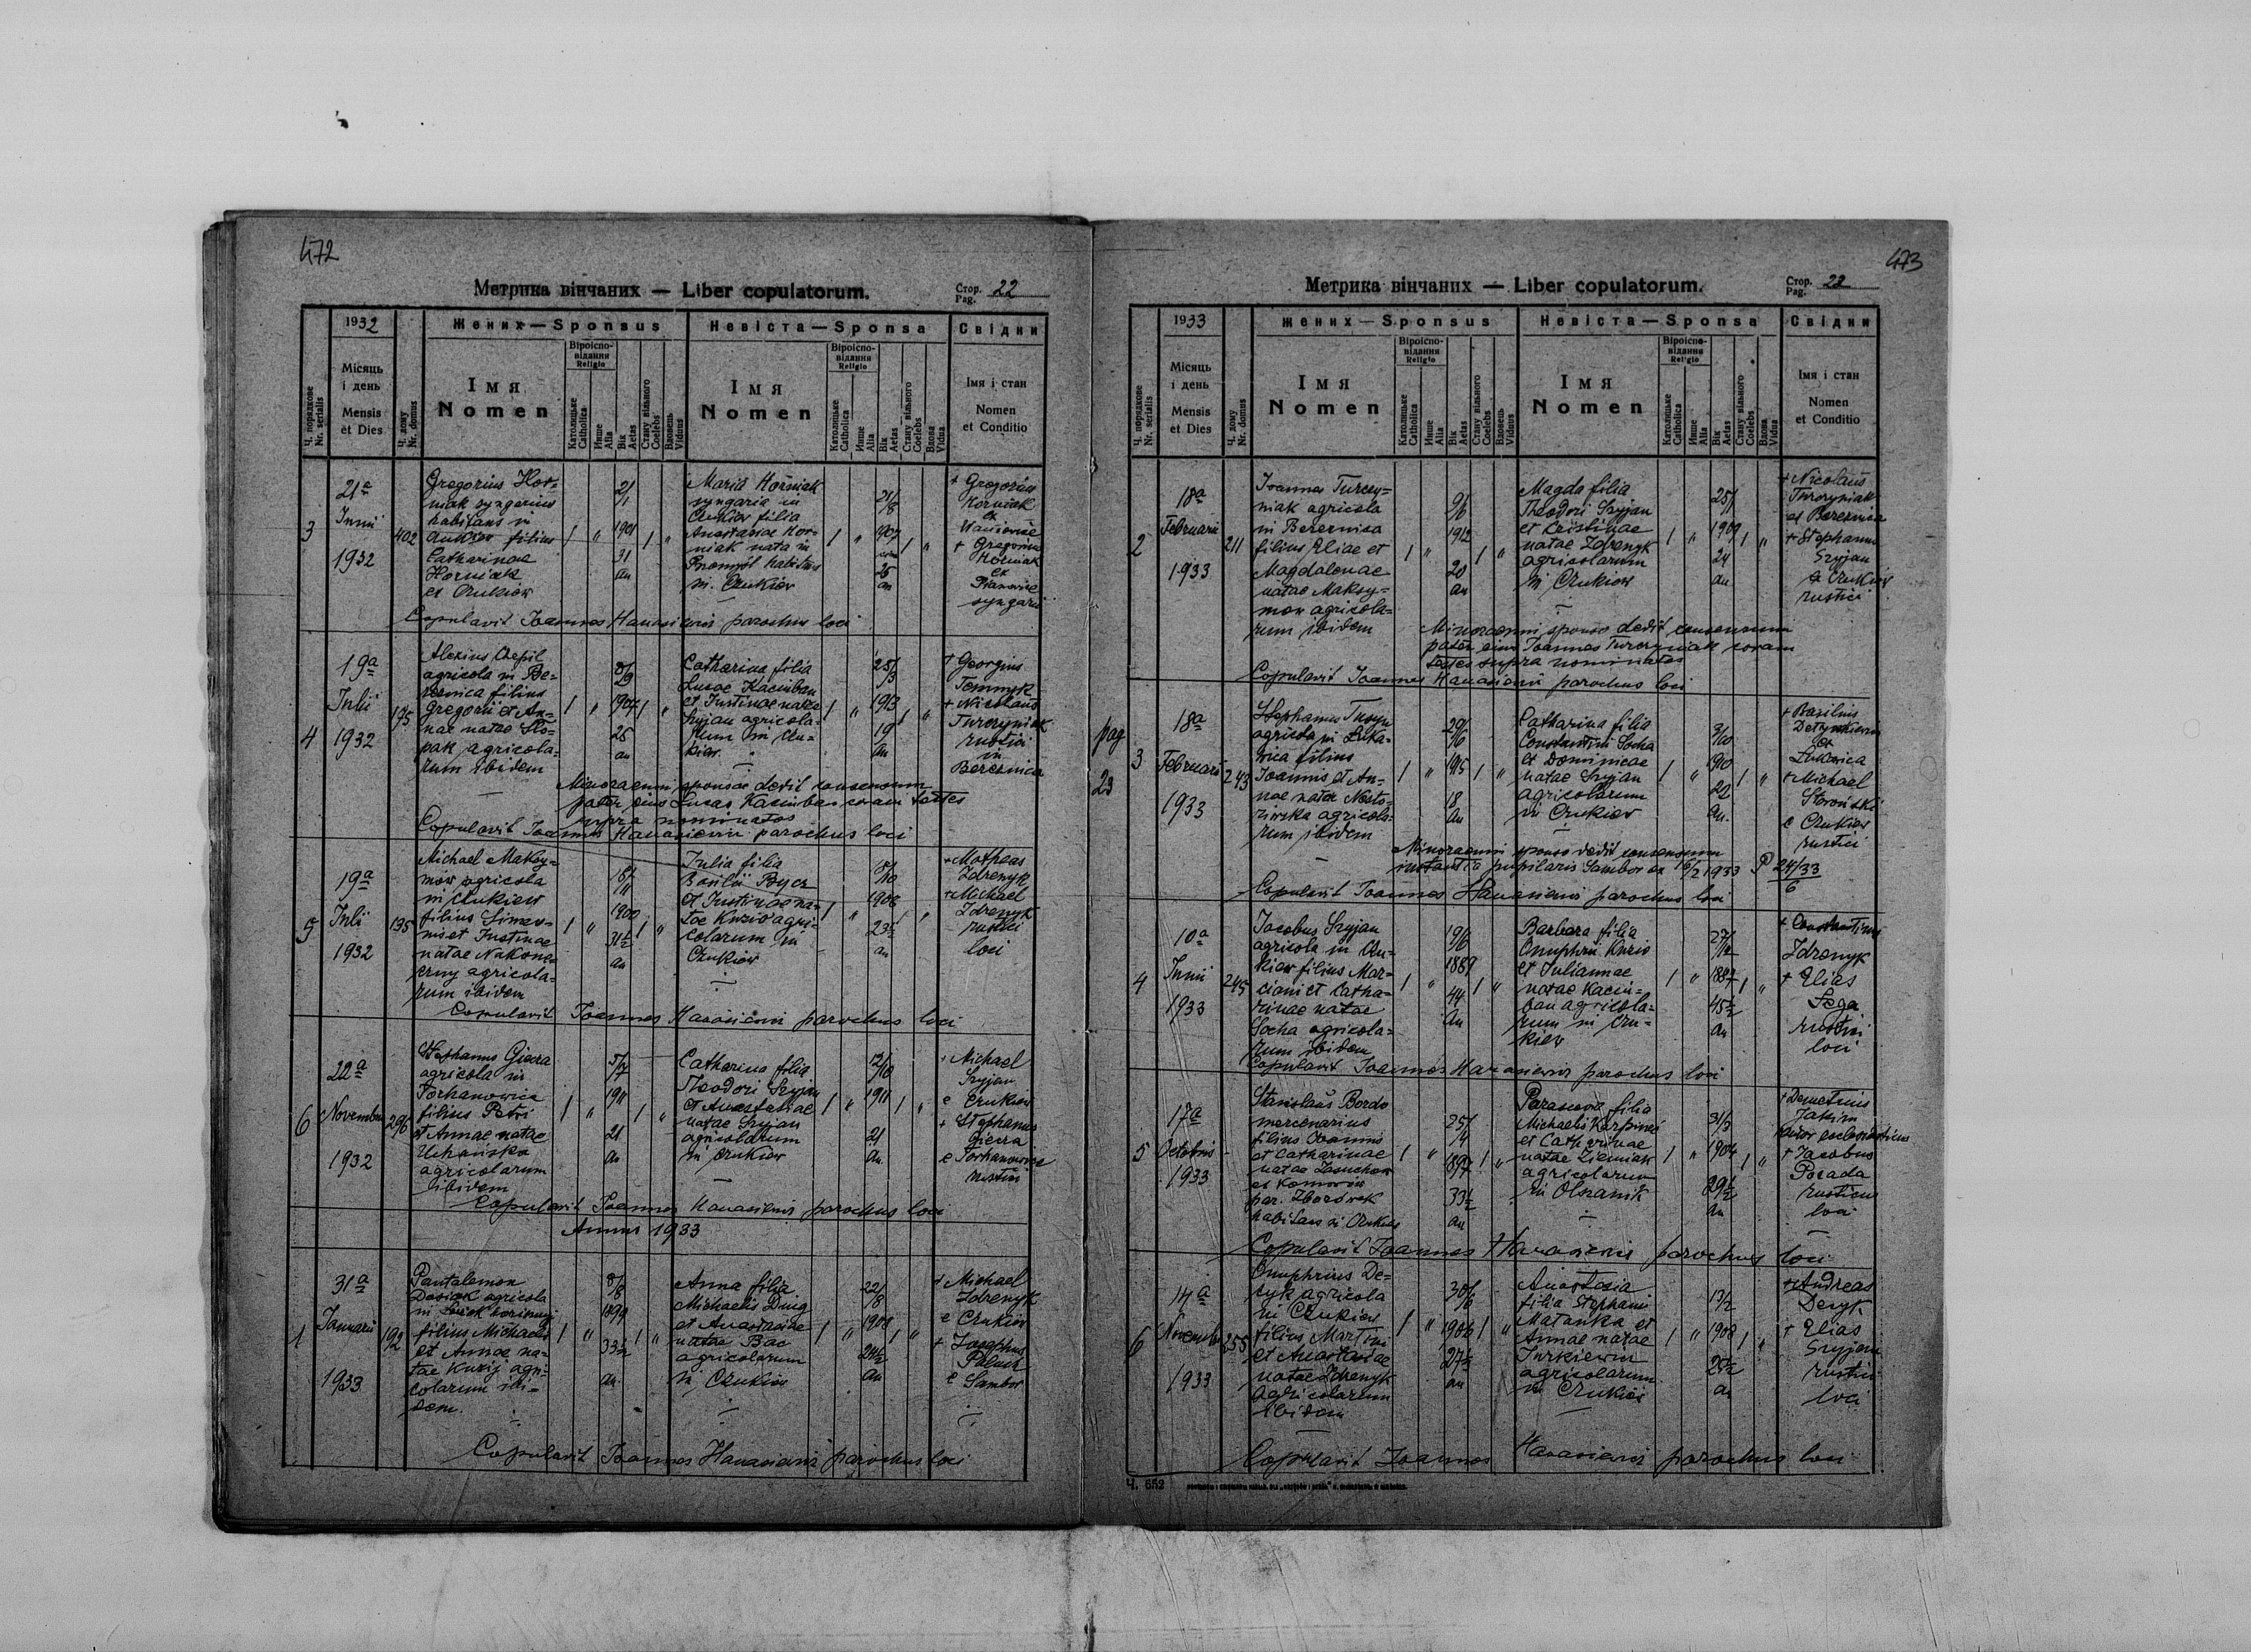 472
Метрика вінчаних — Liber copulatorum.
Стор. Pag. 22
1932
Жених — Sponsus
Невіста — Sponsa
Свідки
Місяць і день
Mensis et Dies
Ч. порядкове Nr. serialis
Ч. дому Nr. domus
Імя
Nomen
Віроіспо-
відання
Religio
Католицьке Catholica
Инше Alia
Вік Aetas
Стану вільного Coelebs
Вдовець Viduus
Імя
Nomen
Віроіспо-
відання
Religio
Католицьке Catholica
Инше Alia
Вік Aetas
Стану вільного Coelebs
Вдова Vidua
Імя і стан
Nomen
et Conditio
3
21a
Junii
1932
402
Gregorius Hor-
niak syngarius
habitans in
Czukiew filius
Catharinae
Horniak
ex Czukiew
1 "
2/1
1901
31
an
1 "
Maria Horniak
syngaria in
Czukiew filia
Anastasiae Hor-
niak nata in
habitans
in Czukiew
1 "
21/8
1907
25
an
1 "
+ Gregorius
Horniak
ex
+ Gregorius
Horniak
ex
syngari
Copulavit Joannes Hanasiewicz parochus loci
4
19a
Julii
1932
175
Alexius Czepil
agricola in Be-
reznica filius
Gregorii et An-
nae natae Sto-
pak agricola-
rum ibidem
1 "
8/9
1907
25
an
1 "
Catharina filia
Lucae Kaciuban
et Justinae natae
Syjan agricola-
rum in Czu-
kiew.
1 "
25/3
1913
19
an
1 "
+ Georgius
+ Nicolaus
Turczyniak
rustici
in
Bereznica
Minorenni sponsae dedit consensum
pater eius Lucas Kaciuban coram testes
supra nominatos
Copulavit Joannes Hanasiewicz parochus loci
5
19a
Julii
1932
135
Michael Maksy-
mow agricola
in Czukiew
filius Simeo-
nis et Justinae
natae Nakone-
czny agricola-
rum ibidem
1 "
18/11
1900
31½
an
1 "
Julia filia
Basilii Bycz
et Justinae na-
tae Kuzio agri-
colarum in
Czukiew
1 "
8/10
1908
23½
an
1 "
+ Matheas
Zdrenyk
+ Michael
Zdrenyk
rustici
loci
Copulavit Joannes Hanasiewicz parochus loci
6
22a
Novembris
1932
296
Stephanus Giera
agricola in
Torhanowice
filius Petri
et Annae natae
Uchańska
agricolarum
ibidem
1 "
5/7
1911
21
an
1 "
Catharina filia
Theodori Syjan
et Anastasiae
natae Syjan
agricolarum
in Czukiew
1 "
12/10
1911
21
an.
1 "
+ Michael
Syjan
e Czukiew
+ Stephanus
Giera
e Torhanowice
rustici
Copulavit Joannes Hanasiewicz parochus loci
Annus 1933
1
31a
Januarii
1933
192
Pantalemon
Dosiak agricola
in
filius Michaelis
et Annae na-
tae Kuzij agri-
colarum ibi-
dem.
1 "
8/8
1899
33½
an.
1 "
Anna filia
Michaelis Duig
et Anastasiae
natae Bac
agricolarum
in Czukiew
1 "
22/8
1908
24½
an
1 "
+ Michael
Zdrenyk
e Czukiew
+ Josephus
Paluch
e Sambor
Copulavit Joannes Hanasiewicz parochus loci
473
Метрика вінчаних — Liber copulatorum.
Стор. Pag. 22
1933
Жених — Sponsus
Невіста — Sponsa
Свідки
Місяць і день
Mensis et Dies
Ч. порядкове Nr. serialis
Ч. дому Nr. domus
Імя
Nomen
Віроіспо-
відання
Religio
Католицьке Catholica
Инше Alia
Вік Aetas
Стану вільного Coelebs
Вдовець Viduus
Імя
Nomen
Віроіспо-
відання
Religio
Католицьке Catholica
Инше Alia
Вік Aetas
Стану вільного Coelebs
Вдова Vidua
Імя і стан
Nomen
et Conditio
2
18a
Februarii
1933
211
Joannes Turczy-
niak agricola
in Bereznica
filius Eliae et
Magdalenae
natae Maksy-
mow agricola-
rum ibidem
1 "
9/6
1912
20
an
1 "
Magda filia
Theodori Syjan
et Cristinae
natae Zdrenyk
agricolarum
in Czukiew
1 "
25/1
1909
24
an
1 "
+ Nicolaus
Turczyniak
ex Bereznica
+ Stephanus
Syjan
e Czukiew
rustici
Minorenni sponso dedit consensum
pater eius Joannes Turczyniak coram
testes supra nominatos
Copulavit Joannes Hanasiewicz parochus loci
pag
23
3
18a
Februarii
1933
243
Stephanus Tusyn
agricola in Luka-
wica filius
Joannis et An-
nae natae Nesto-
rivska agricola-
rum ibidem
1 "
29/6
1915
18
an
1 "
Catharina filia
Constantini Socha
et Dominicae
natae Syjan
agricolarum
in Czukiew
1 "
3/10
1910
22
an.
1 "
+ Basilius
et
Lukawica
+ Michael
Storoński
e Czukiew
rustici
Minorenni sponso dedit consensum
instantia pupilaris Sambor ex 16/2 1933 P 24/33
6
Copulavit Joannes Hanasiewicz parochus loci
4
10a
Junii
1933
245
Jacobus Syjan
agricola in Czu-
kiew filius Mar-
ciani et Catha-
rinae natae
Socha agricola-
rum ibidem
1 "
19/6
1889
44
an
1 "
Barbara filia
Onuphrii Kuzio
et Juliannae
natae Kaciu-
ban agricola-
rum in Czu-
kiew
1 "
27/12
1887
45½
an
1 "
+ Constantinus
Zdrenyk
+ Elias
Fega
rustici
loci
Copulavit Joannes Hanasiewicz parochus loci
5
17a
Octobris
1933
Stanislaus Bordo
mercenarius
filius Joannis
et Catharinae
natae
ex Komorow
par. Zborowek
habitans in Czukiew
1 "
25/4
1897
33½
an
1 "
Parascevia filia
Michaelis Karpiniec
et Catharinae
natae Ziemiak
agricolarum
in Olszanik
1 "
31/3
1904
29½
an
1 "
+ Demetrius
Jakim
cantor ecclesiasticus
+ Jacobus
Posada
rusticus
loci
Copulavit Joannes Hanasiewicz parochus loci
6
14a
Novembris
1933
255
Onuphrius De-
cyk agricola
in Czukiew
filius Martini
et Anastasiae
natae Zdrenyk
agricolarum
ibidem
1 "
30/6
1906
27½
an
1 "
Anastasia
filia Stephani
Matanka et
Annae natae
Jurkiewicz
agricolarum
in Czukiew
1 "
13/2
1908
25½
an
1 "
+ Andreas
Decyk
+ Elias
Syjan
rustici
loci
Copulavit Joannes Hanasiewicz parochus loci
Ч. 652